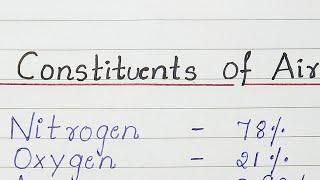 Constituents of Air
Nitrogen - 78%
Oxygen - 21%